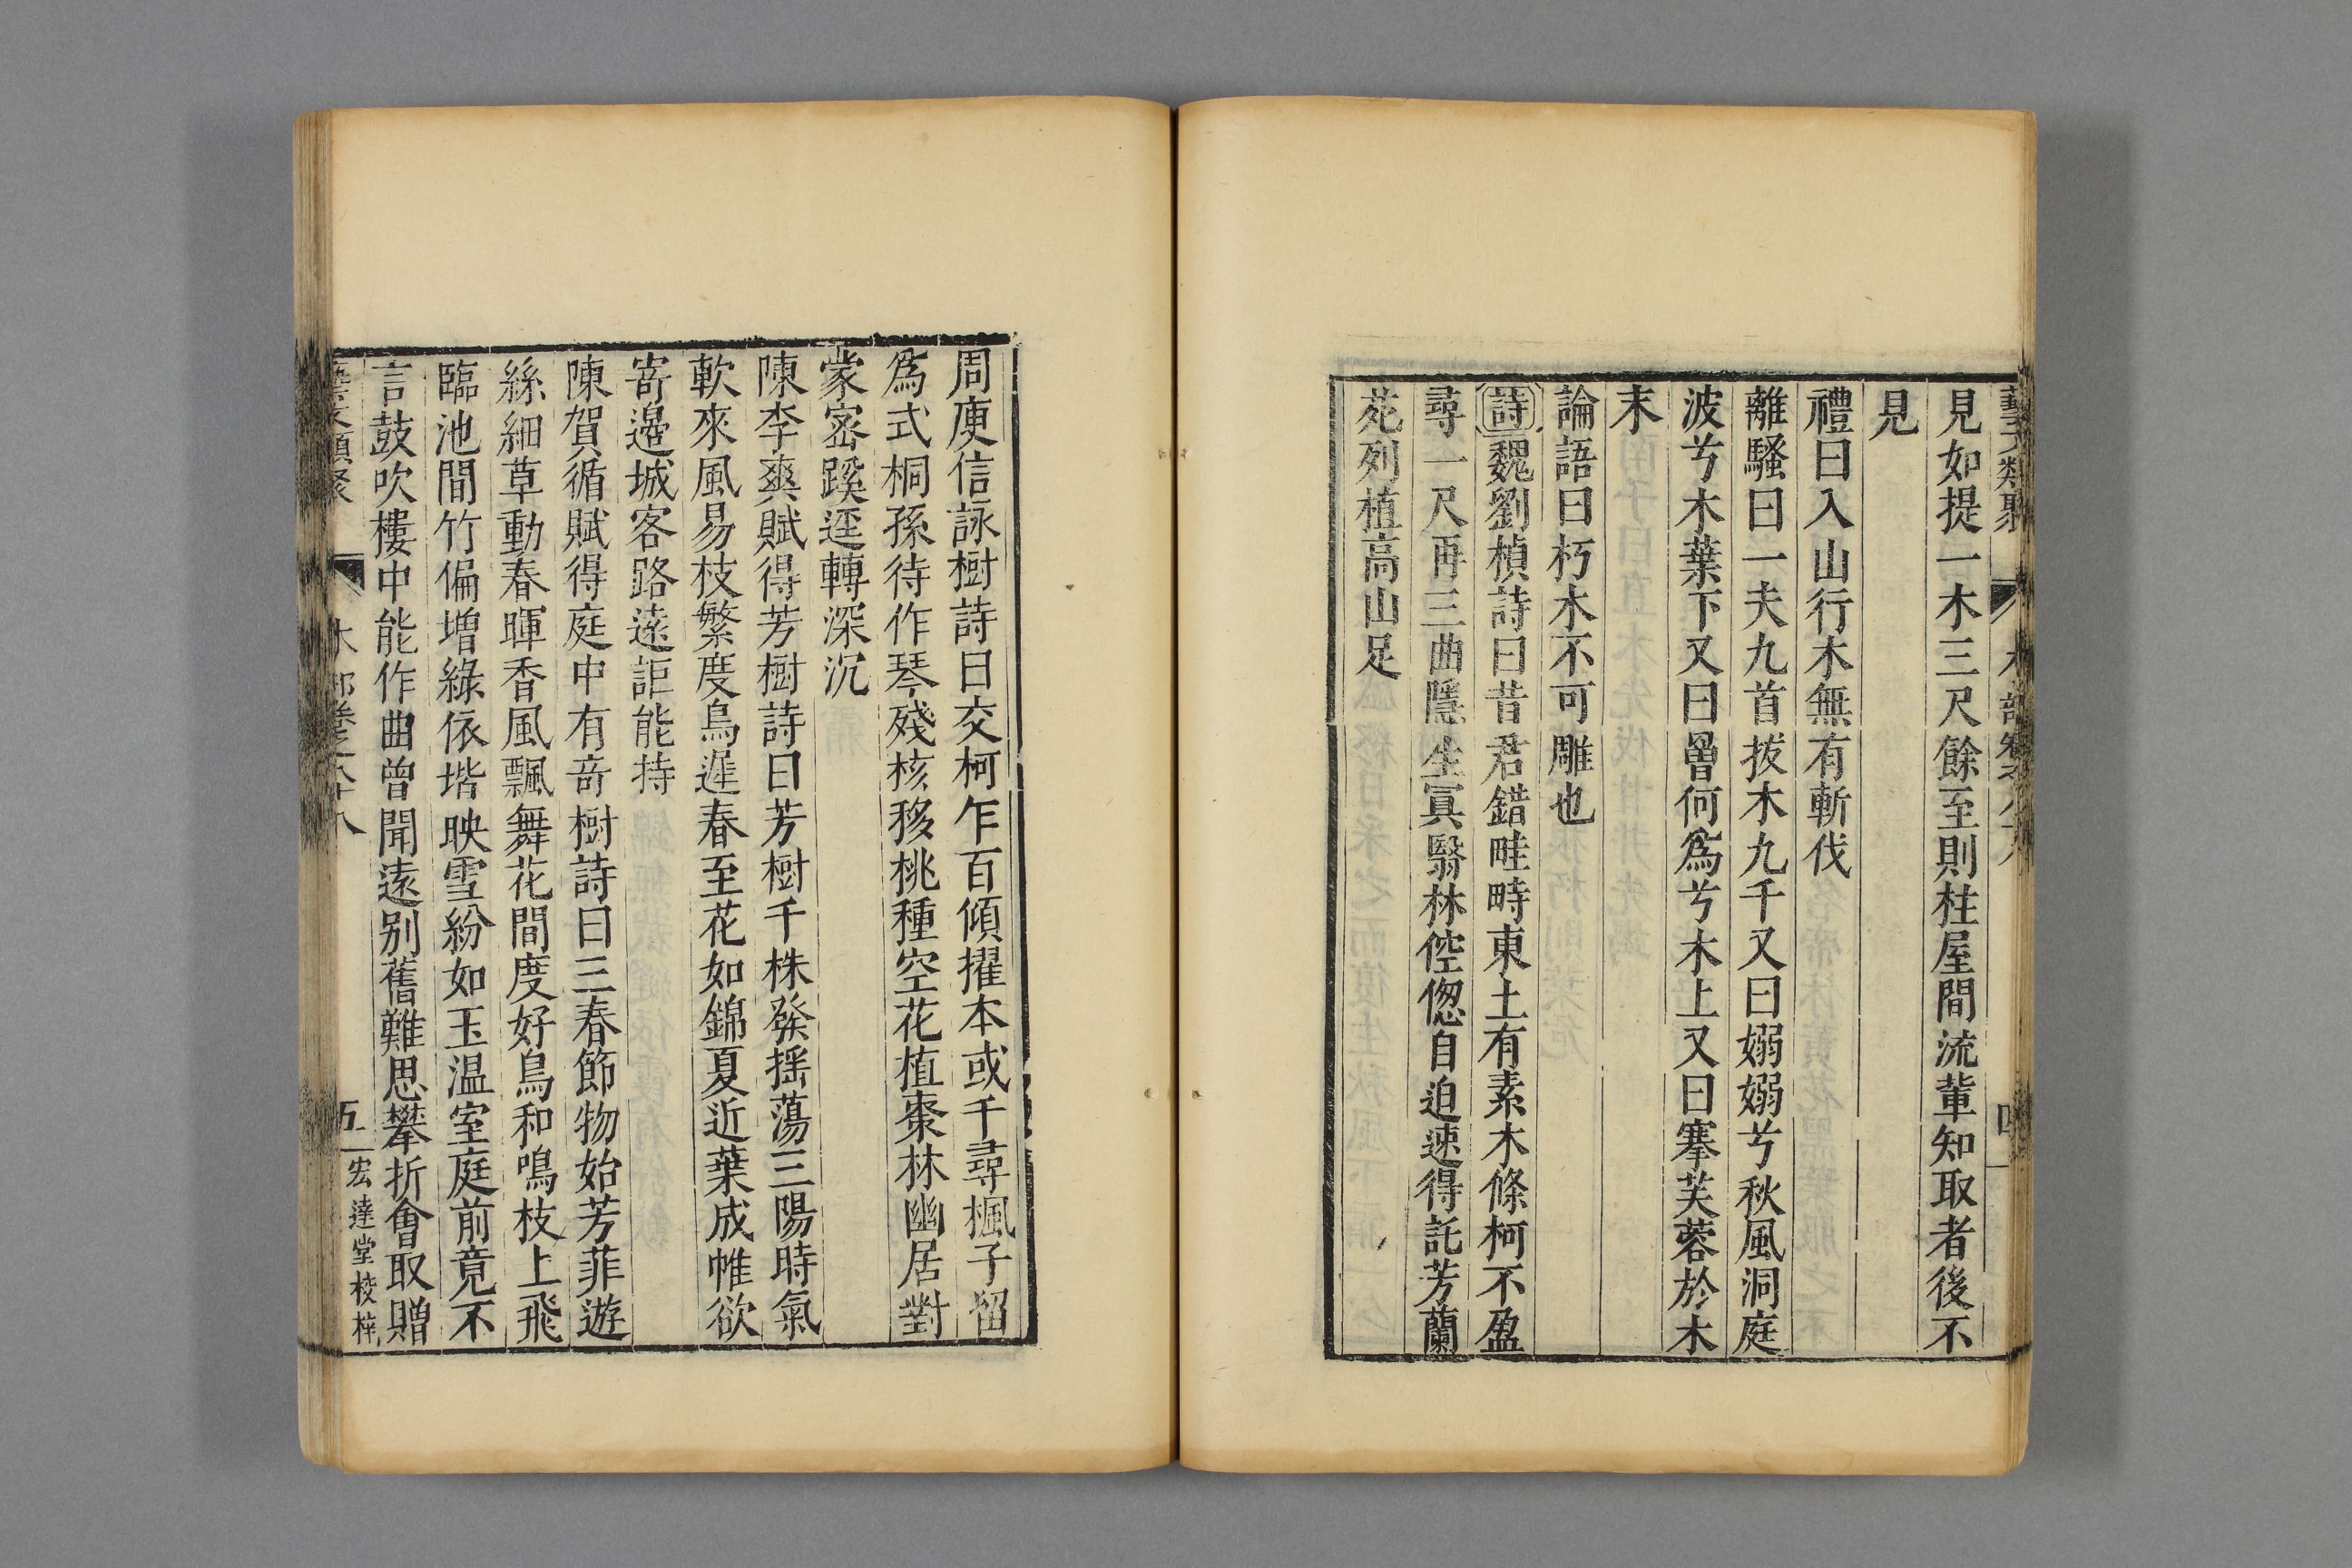 藝文類聚 木部卷之八十八 四
見如提一木三尺餘至則柱屋間流輩知取者後不
見
禮曰入山行木無有斬伐
離騷曰一夫九首拔木九千又曰嫋嫋兮秋風洞庭
波兮木葉下又曰罾何爲兮木上又曰搴芙蓉於木
末
論語曰朽木不可雕也
詩魏劉楨詩曰昔君錯畦畤東土有素木條柯不盈
尋一尺再三曲隱生寘翳林倥偬自迫速得託芳蘭
苑列植高山足
周庾信詠樹詩曰交柯乍百傾擢本或千尋楓子留
爲式桐孫待作琴殘核移桃種空花植棗林幽居對
蒙密蹊逕轉深沉
陳李爽賦得芳樹詩曰芳樹千株發搖蕩三陽時氣
軟來風易枝繁度鳥遲春至花如錦夏近葉成帷欲
寄邊城客路遠詎能持
陳賀循賦得庭中有奇樹詩曰三春節物始芳菲遊
絲細草動春暉香風飄舞花間度好鳥和鳴枝上飛
臨池間竹偏增綠依堦映雪紛如玉温室庭前竟不
言鼓吹樓中能作曲曾聞遠别舊難思攀折會取贈
藝文類聚 木部卷之八十八 五 宏達堂校梓